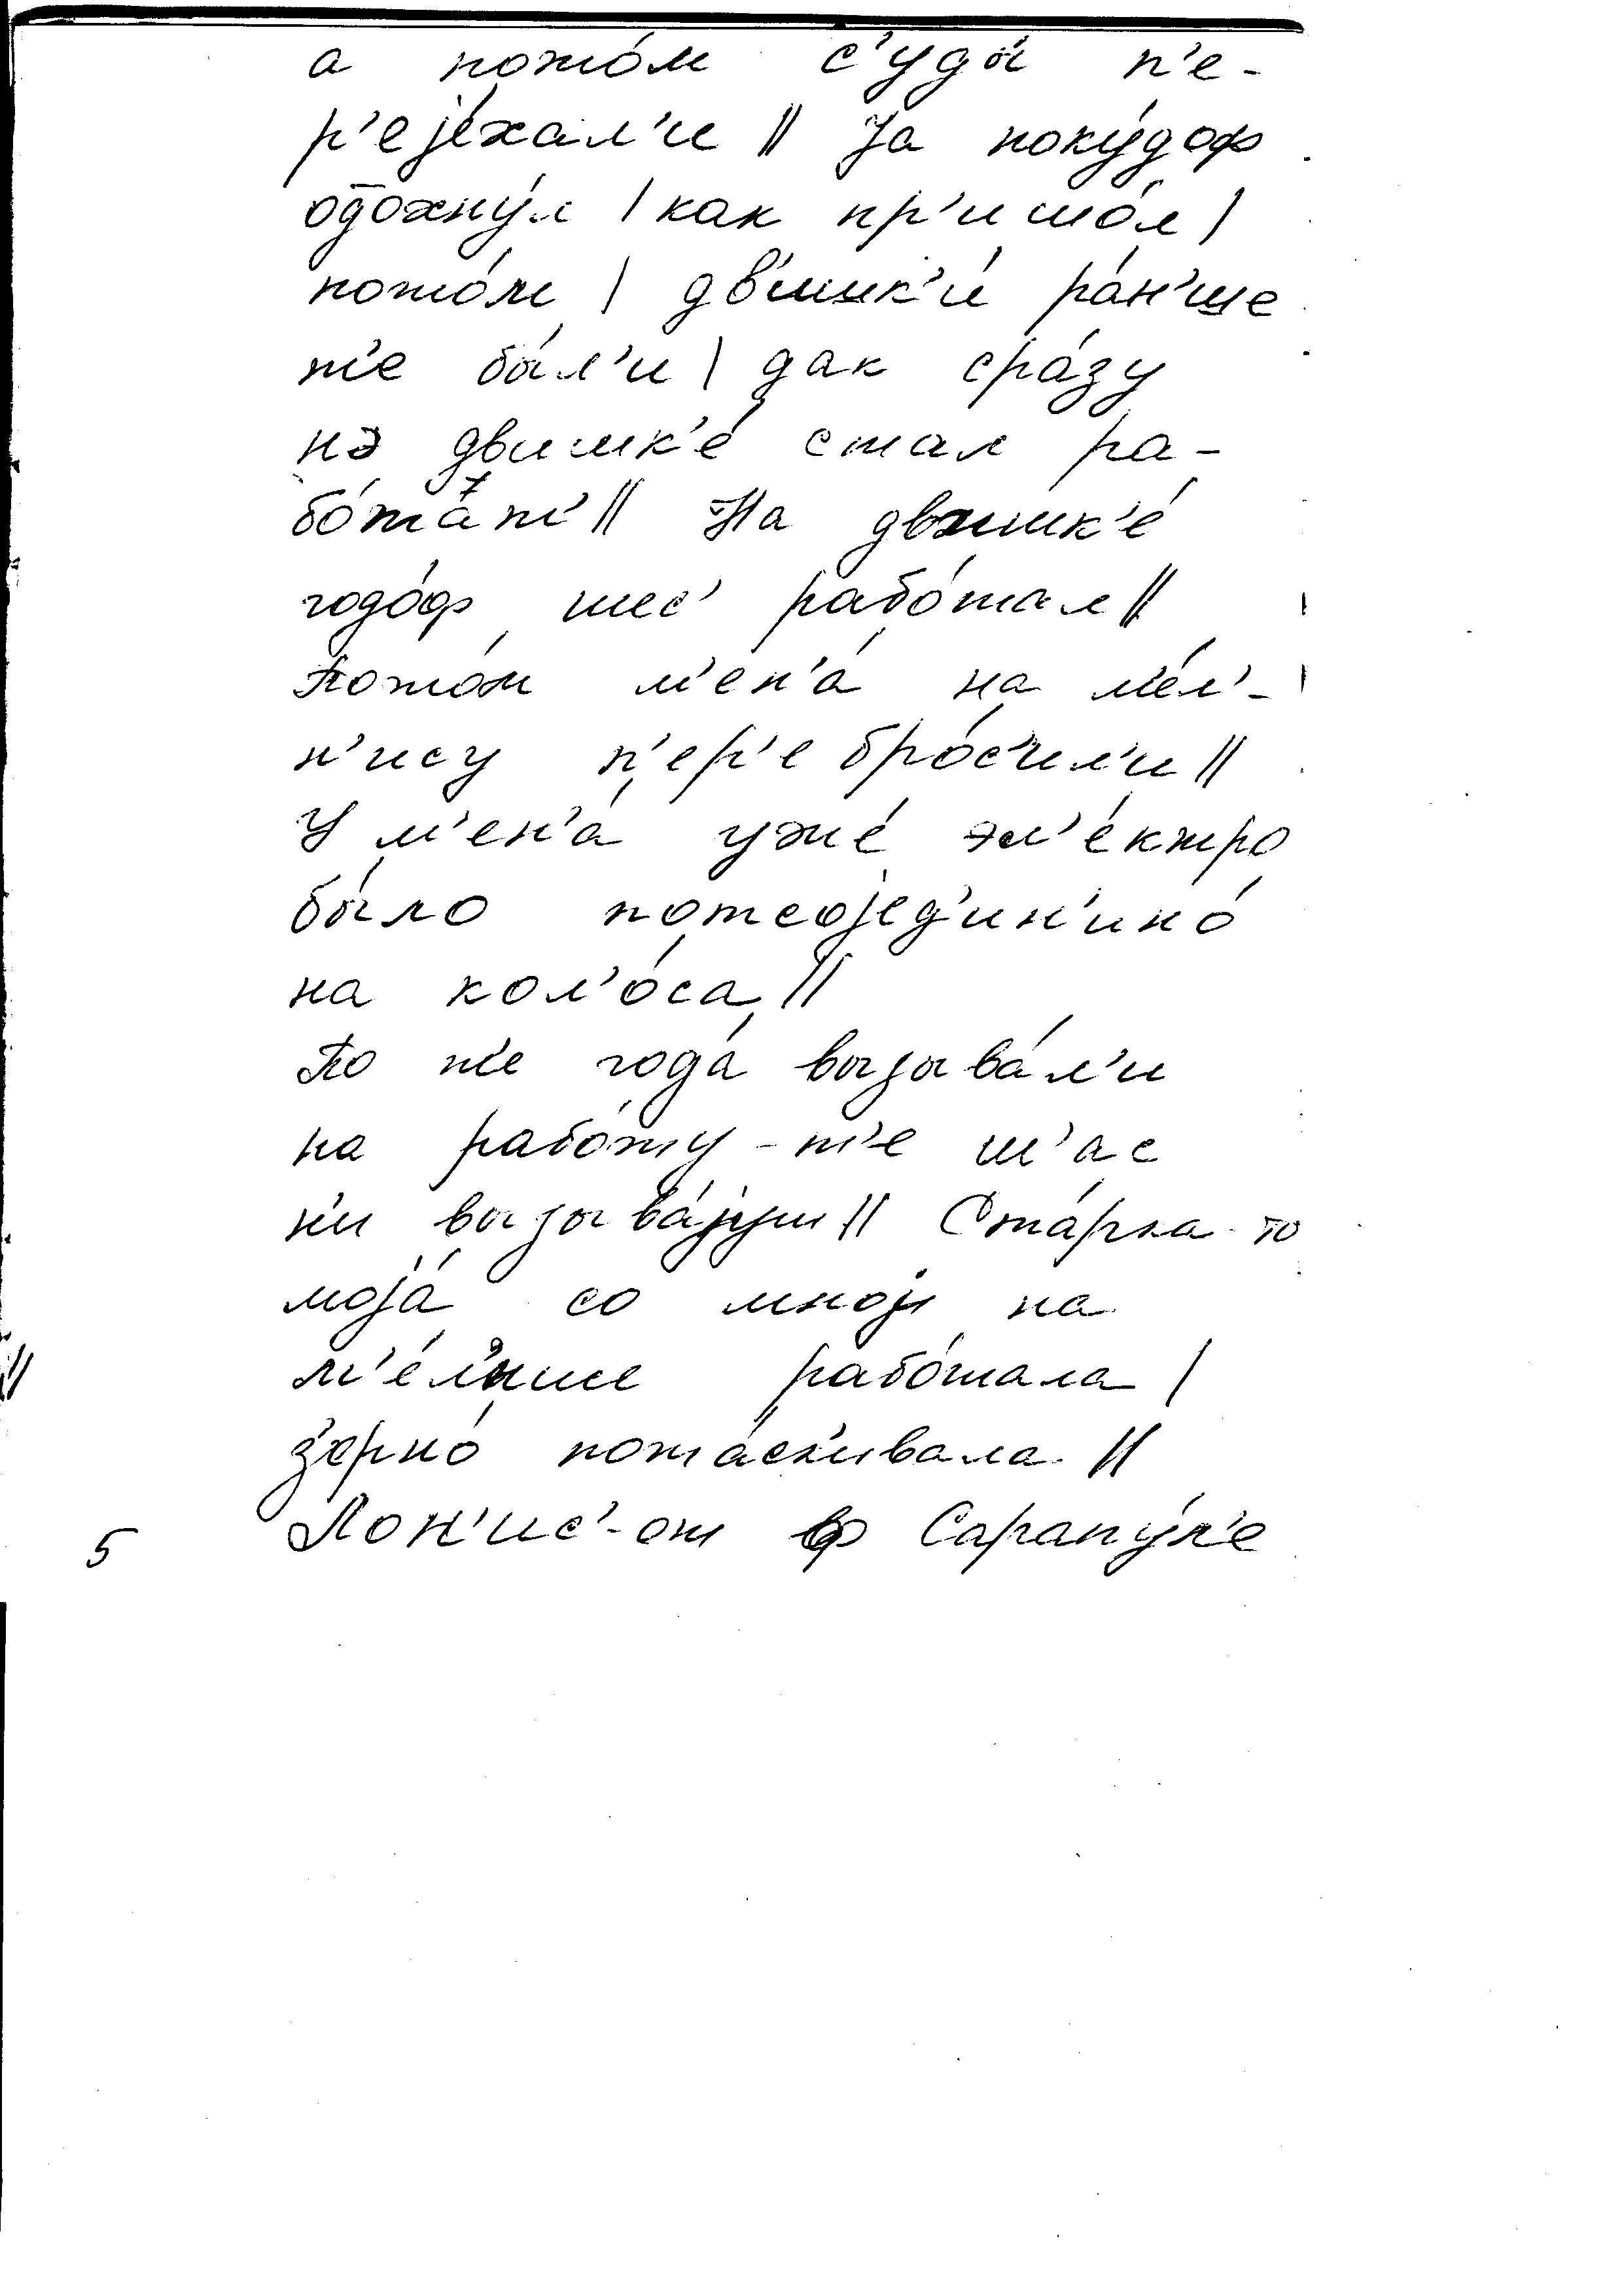 а пото́м с’уды́ п’е-
р’еjе́хал’и || Jа поку́доф
одохну́л | как пр’ишо́л |
пото́м | дв’ишк’и́ ра́н’ше
т’е бы́л’и | дак сра́зу
на движк’е́ стал ра-
бо́тат’ || На движк’е́
годо́ф шес’ рабо́тал ||
Пото́м м’ен’а́ на м’е́л’-
н’ису п’ер’ебро́с’ил’и ||
У м’ен’а́ уже́ эл’е́ктро
бы́ло потсоjед’ин’ино́
на кол’о́са ||
По т’е года́ вызыва́л’и
на рабо́ту - т’е ш’ас
н’и вызыва́jут || Ста́рка-то
моjа́ со мноj на
м’е́л’нише рабо́тала |
з’ерно́ пота́ск’ивала ||
5 Лон’ис’-от ф Сарапу́л’е